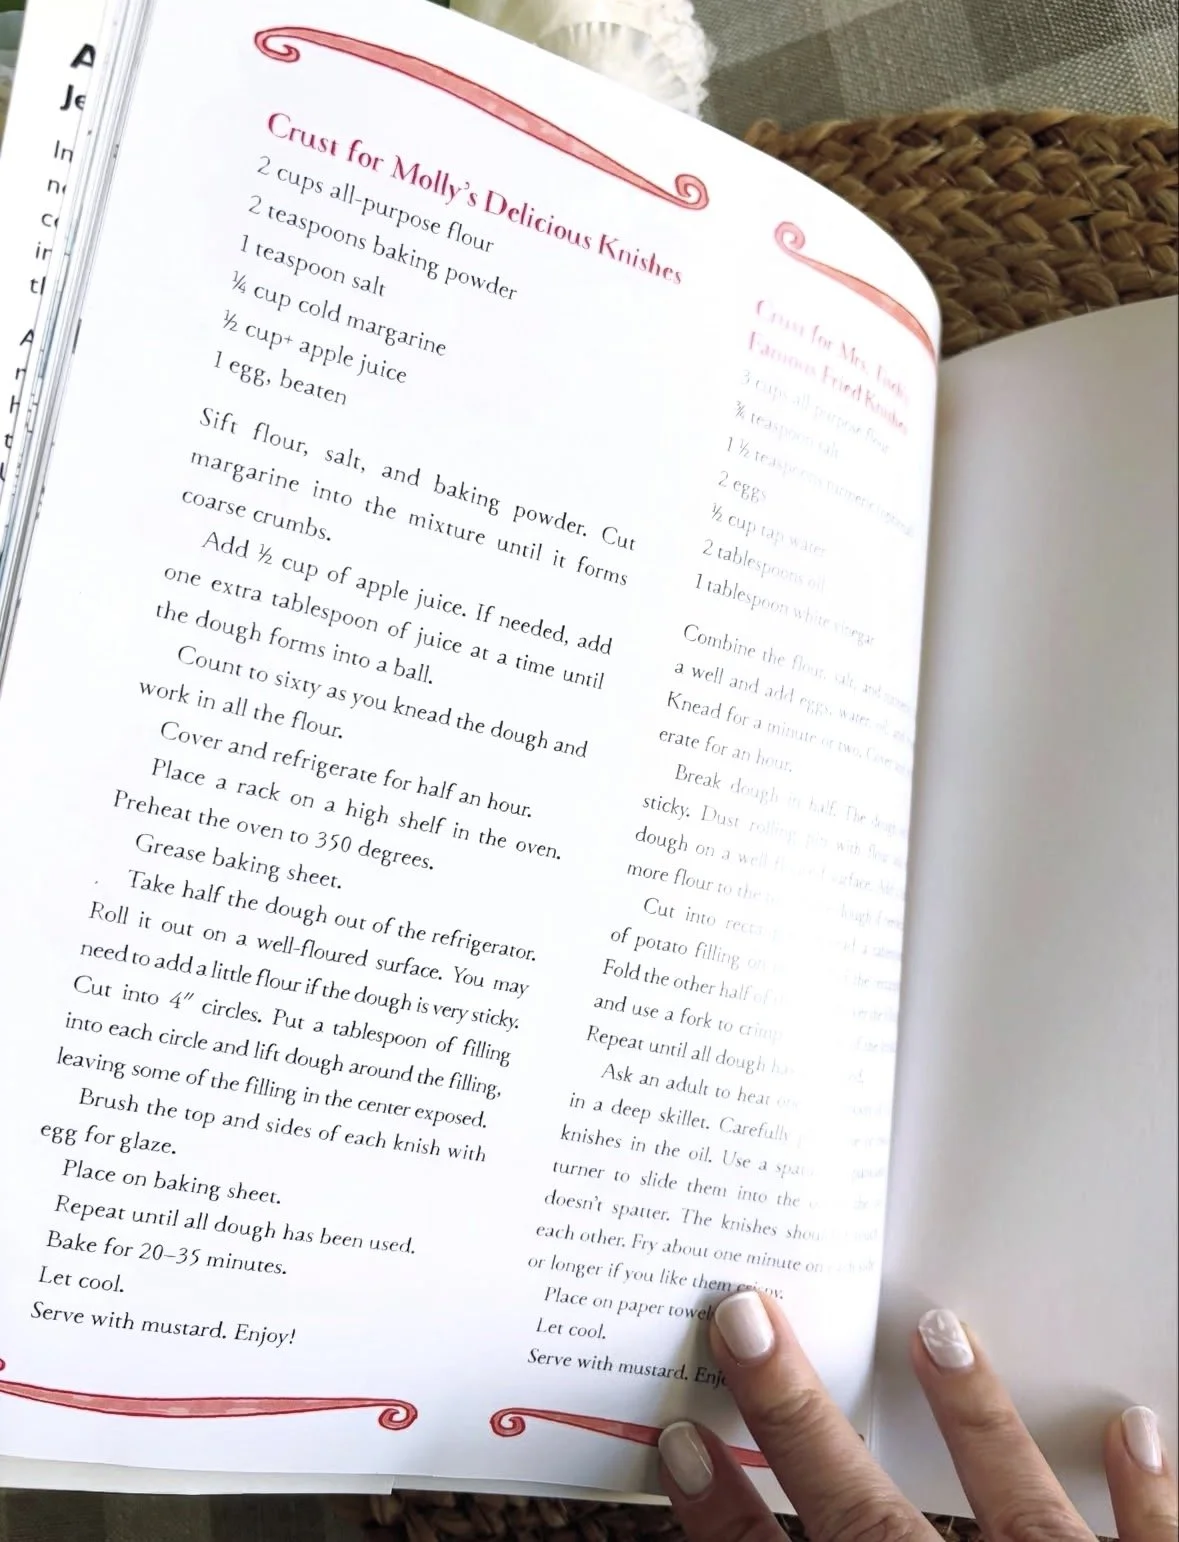 Crust for Molly's Delicious Knishes
2 cups all-purpose flour
2 teaspoons baking powder
1 teaspoon salt
¼ cup cold margarine
½ cup+ apple juice
1 egg, beaten
Sift flour, salt, and baking powder. Cut
margarine into the mixture until it forms
coarse crumbs.
Add ½ cup of apple juice. If needed, add
one extra tablespoon of juice at a time until
the dough forms into a ball.
Count to sixty as you knead the dough and
work in all the flour.
Cover and refrigerate for half an hour.
Place a rack on a high shelf in the oven.
Preheat the oven to 350 degrees.
Grease baking sheet.
Take half the dough out of the refrigerator.
Roll it out on a well-floured surface. You may
need to add a little flour if the dough is very sticky.
Cut into 4" circles. Put a tablespoon of filling
into each circle and lift dough around the filling,
leaving some of the filling in the center exposed.
Brush the top and sides of each knish with
egg for glaze.
Place on baking sheet.
Repeat until all dough has been used.
Bake for 20–35 minutes.
Let cool.
Serve with mustard. Enjoy!
Crust for Mrs.
Famous Fried Knishes
3 cups all purpose flour
¾ teaspoon salt
1 ½ teaspoons turmeric
2 eggs
½ cup tap water
2 tablespoons oil
1 tablespoon white vinegar
Combine the flour, salt, and
a well and add eggs, water, oil, and
Knead for a minute or two. Cover
erate for an hour.
Break dough in half. The dough
sticky. Dust rolling pin with flour
dough on a well floured surface.
more flour to the
Cut into
of potato filling on
Fold the other half of
and use a fork to crimp
Repeat until all dough
Ask an adult to heat
in a deep skillet. Carefully
knishes in the oil. Use a
turner to slide them into the
doesn't spatter. The knishes
each other. Fry about one minute on
or longer if you like them crispy.
Place on paper
Let cool.
Serve with mustard.